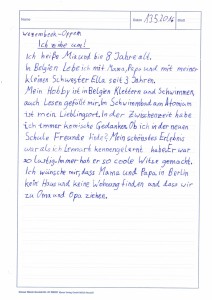 Datum 13.5.2014
Wezembeek-Oppem
Ich ziehe um!
Ich heiße Mia und bin 8 Jahre alt.
In Belgien Lebe ich mit Mama, Papa und mit meiner
kleinen Schwester Ella seit 3 Jahren.
Mein Hobby ist in Belgien Klettern und Schwimmen,
auch Lesen gefällt mir. Im Schwimmbad am Atomium
ist mein Lieblingsort. In der Zwischenzeit habe
ich immer komische Gedanken. Ob ich in der neuen
Schule Freunde finde? Mein schönstes Erlebnis
war als ich Lennart kennengelernt habe. Er war
so lustig. Immer hat er so coole Witze gemacht.
Ich wünsche mir, dass Mama und Papa in Berlin
kein Haus und keine Wohnung finden und dass wir
zu Oma und Opa ziehen.